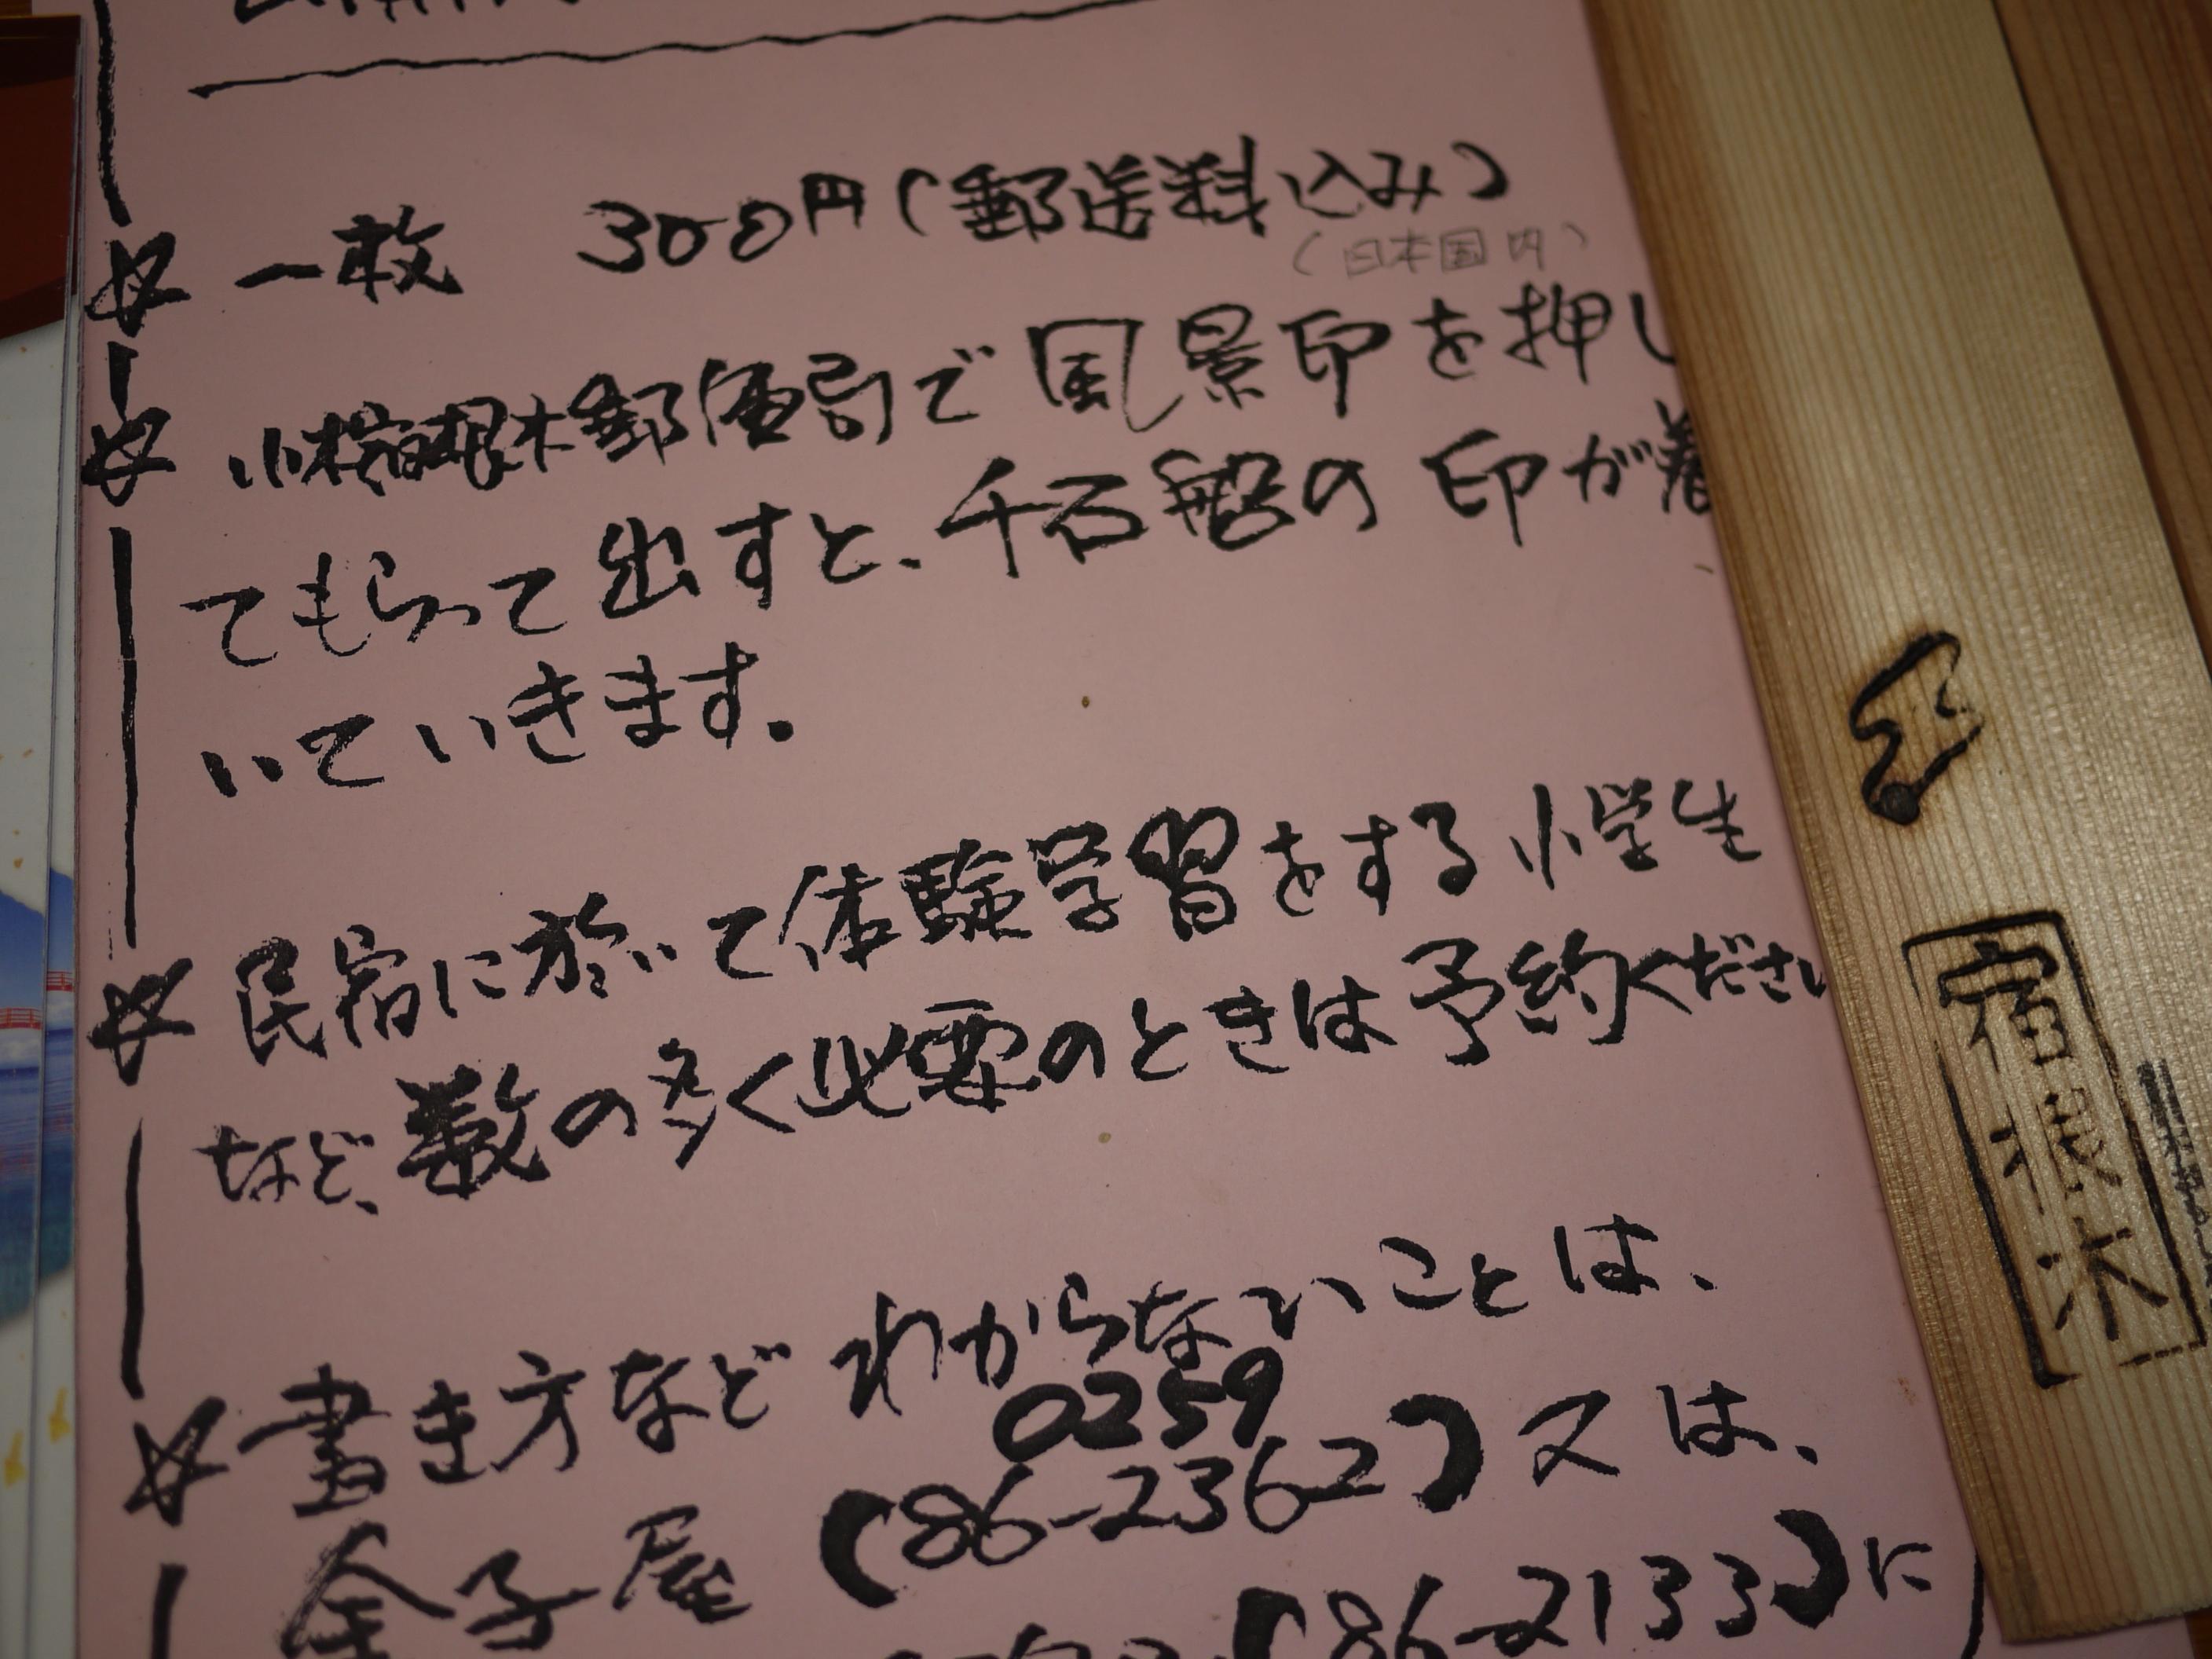 一枚 300円(郵送料込み)
(日本国内)
小木宿根木郵便局で風景印を押し
てもらって出すと、千石船の印が着
いていきます。
民宿に於いて体験学習をする小学生
など、数の多く必要のときは予約ください
書き方など わからないことは、
0259
金子屋(86-2362)又は、
(86-2133)に
宿根木